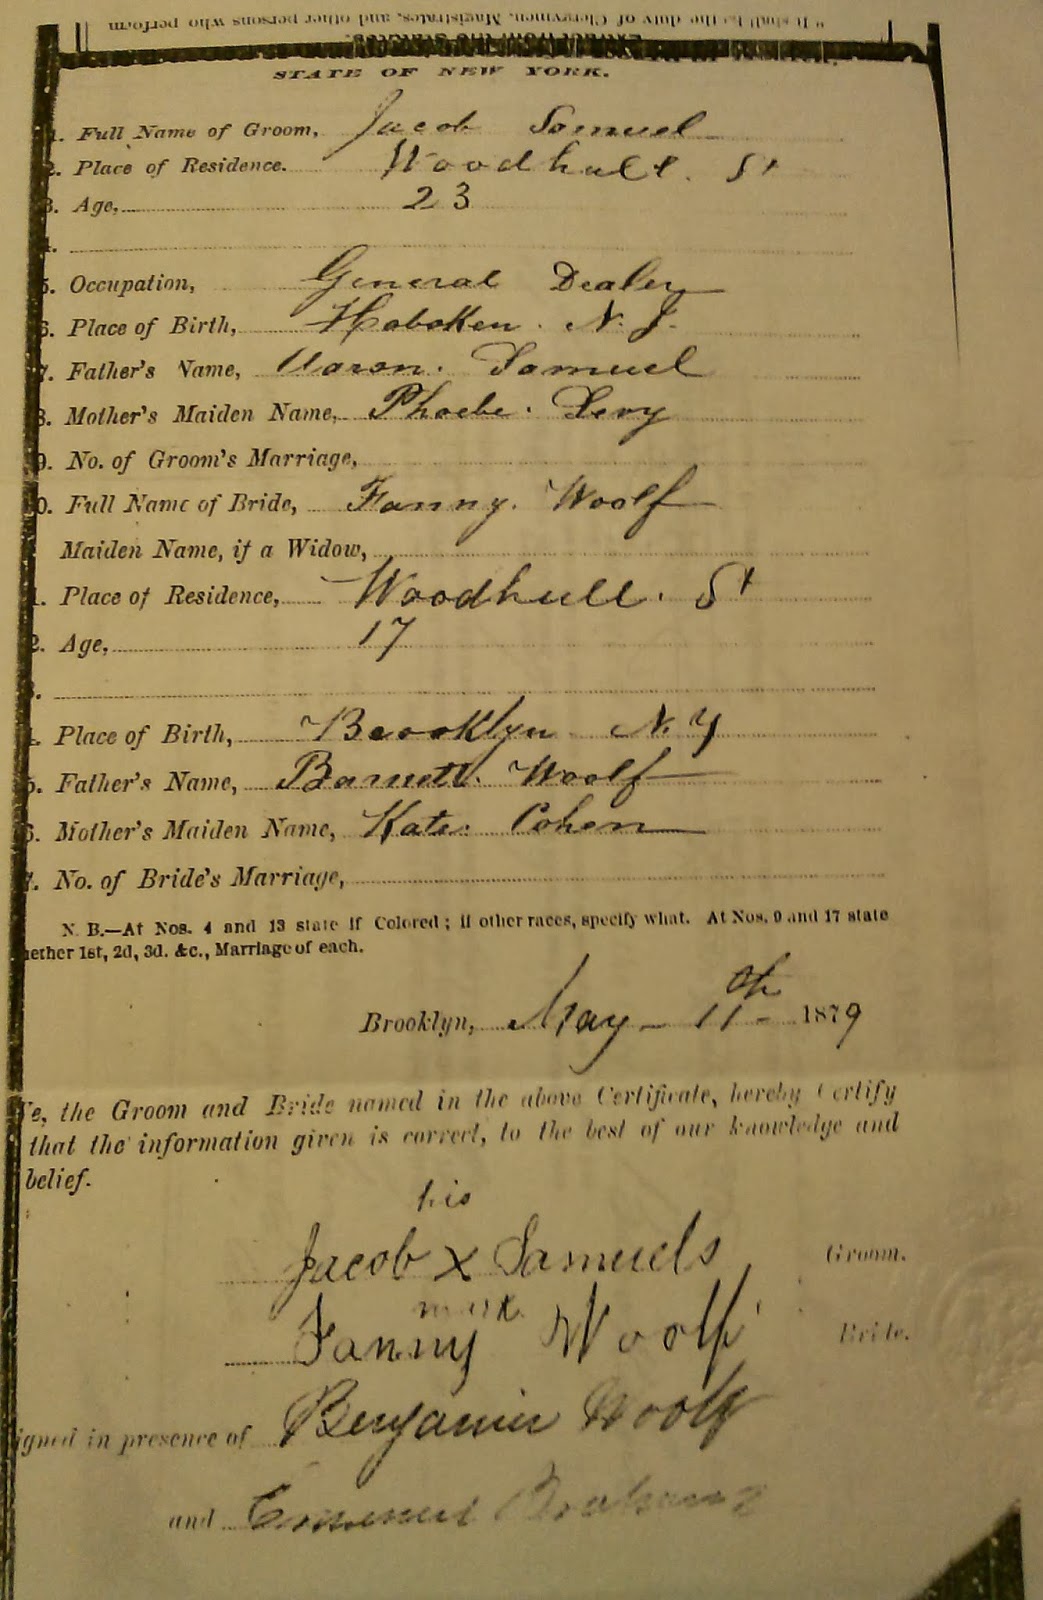 " It shall be the duty of Clergymen, Magistrates, and other persons who perform
Extract from the Statutes.
STATE OF NEW YORK.
1. Full Name of Groom, Jacob Samuel
2. Place of Residence. Woodhull St
3. Age, 23
4.
5. Occupation, General Dealer
6. Place of Birth, Hoboken. N. J.
7. Father's Name, Aaron. Samuel
8. Mother's Maiden Name, Phoebe. Levy
9. No. of Groom's Marriage,
0. Full Name of Bride, Fanny. Woolf
Maiden Name, if a Widow,
1. Place of Residence, Woodhull. St
2. Age, 17
.
. Place of Birth, Brooklyn N. Y
5. Father's Name, Barnett. Woolf
6. Mother's Maiden Name, Kate. Cohen
7. No. of Bride's Marriage,
N. B.—At Nos. 4 and 13 state if Colored; if other races, specify what. At Nos. 9 and 17 state
hether 1st, 2d, 3d. &c., Marriage of each.
Brooklyn, May - 11th - 1879
e, the Groom and Bride named in the above Certificate, hereby Certify
that the information given is correct, to the best of our knowledge and
belief.
his
Jacob X Samuels Groom.
mark
Fanny Woolf Bride.
igned in presence of Benjamin Woolf
and